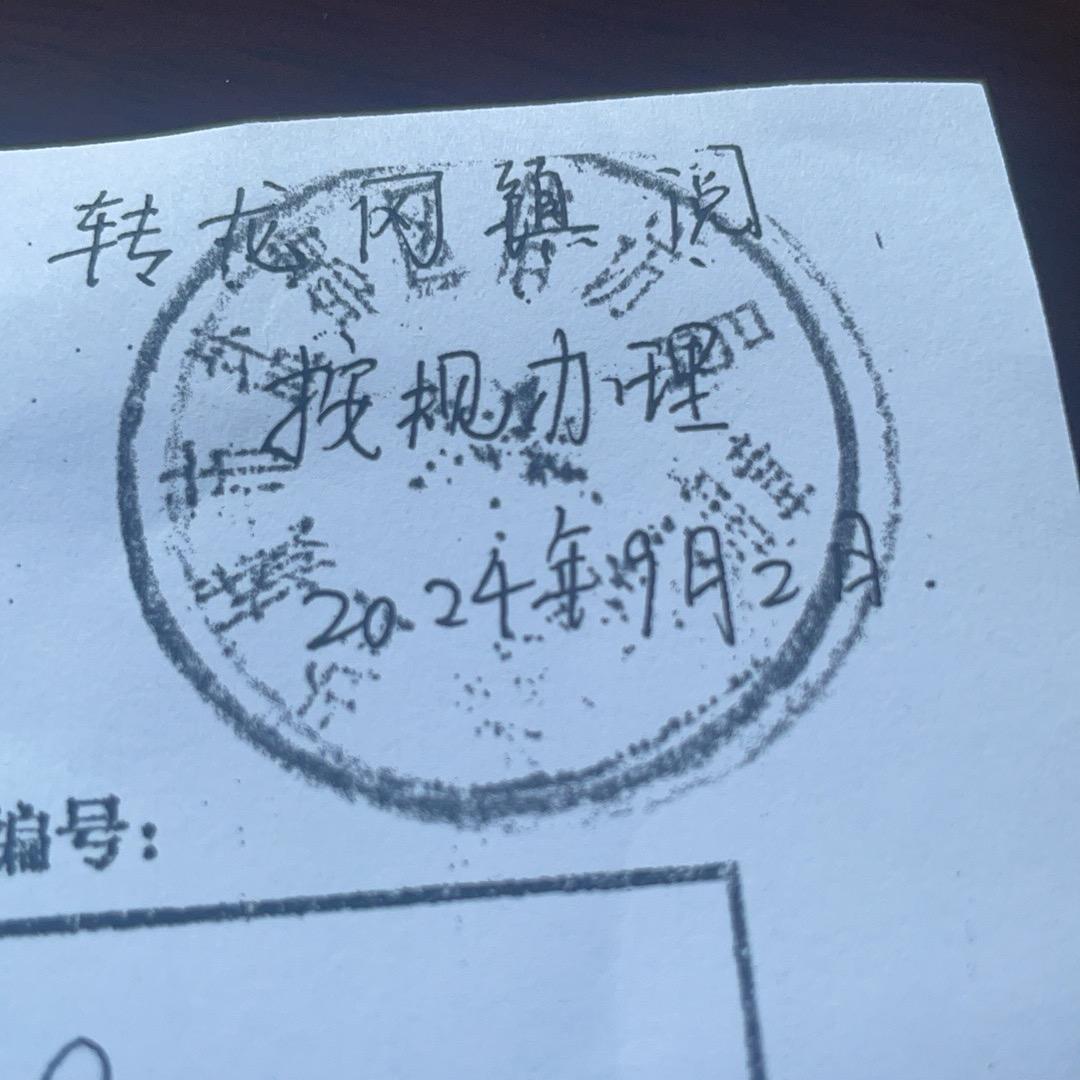 转龙冈镇阅
按规办理
2024年9月2日.
编号: